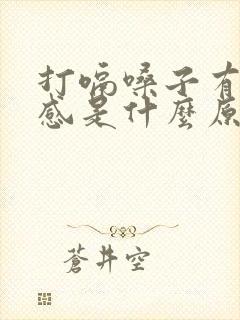 打嗝嗓子有
感是什麼原
蒼井空